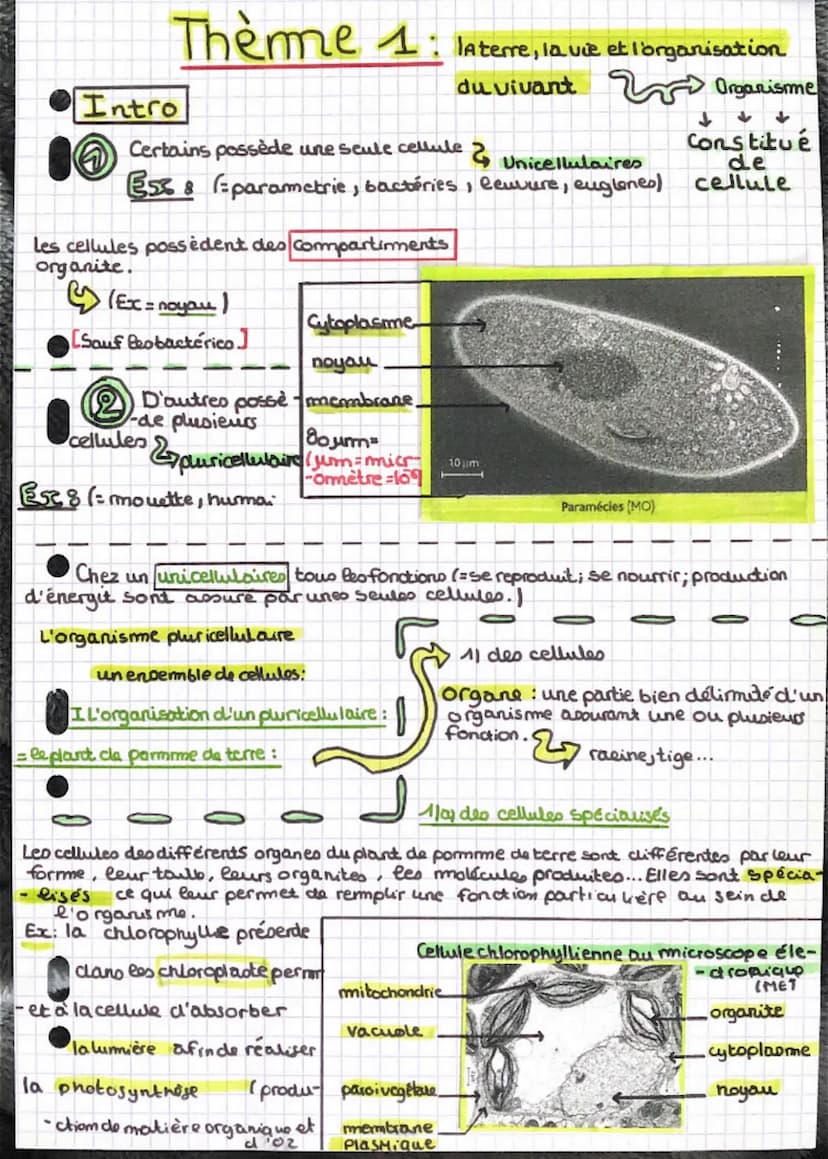 Thème 1 : la terre, la vie et l'organisation
du vivant
Organisme
Constitué
de
cellule
Intro
1 Certains possède une seule cellule
Unicellulaires
Ex : (=parametrie, bactéries, leuvure, euglones)
les cellules possèdent des compartiments
organite.
(Ex = noyau)
[Sauf les bactérico]
Cytoplasme
noyau
membrane
80 µm=
(µm=micr-
-omètre =10⁹
10 µm
Paramécies (MO)
2 D'autres possè-
-de plusieurs
cellules
pluricellulaire
Ex : (= mouette, humai
Chez un unicellulaires tous les fonctions (=se reproduit; se nourrir; production
d'énergit sont assuré par unes seules cellules.)
L'organisme pluricellulaire
un ensemble de cellules:
I L'organisation d'un pluricellulaire :
= le plant de pommme de terre :
1) des cellules
organe : une partie bien délimité d'un
organisme assurant une ou plusieurs
fonction.
racine, tige...
1/a) des cellules spécialisés
Les cellules des différents organes du plant de pommme de terre sont différentes par leur
forme, leur taille, leurs organites, les molécules produites... Elles sont spécia-
-lisés ce qui leur permet de remplir une fonction particulière au sein de
l'organisme.
Ex: la chlorophylle présente
dans les chloroplaste perm
-et à la cellule d'absorber
la lumière afin de réaliser
la photosynthèse (produ-
-ction de matière organique et
d'O2
Cellule chlorophyllienne au microscope éle-
-ctronique
(MET
mitochondrie
vacuole
paroi végétale
membrane
plasmique
organite
cytoplasme
noyau